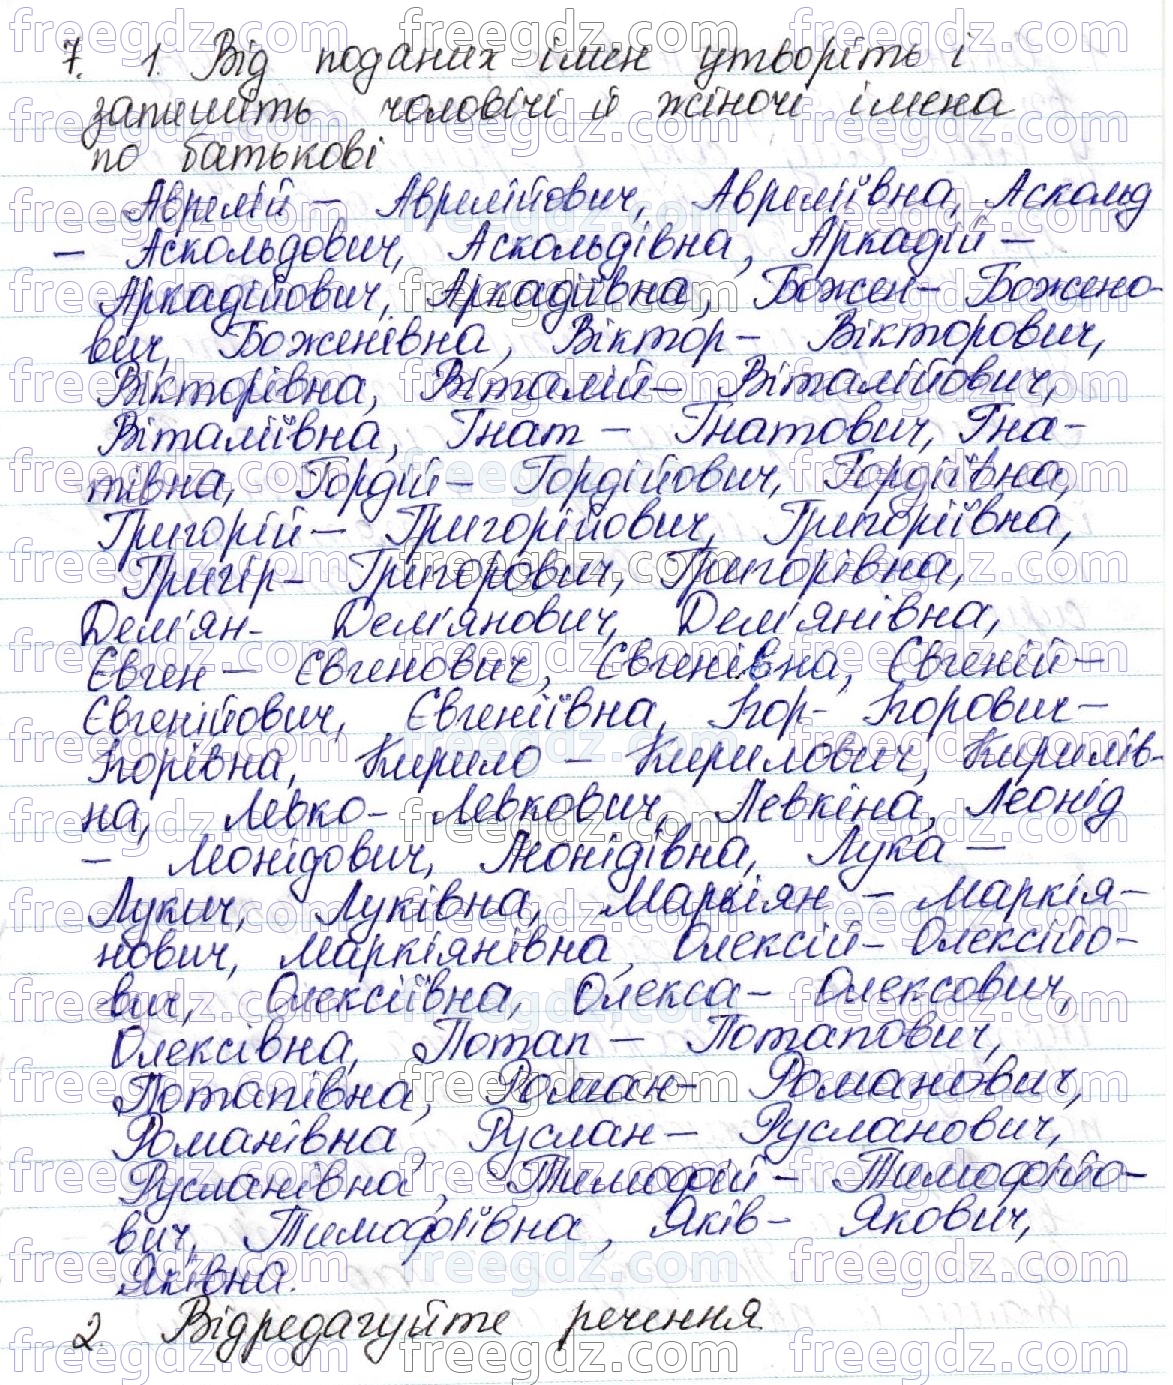 7. 1. Від поданих імен утворіть і
запишіть чоловічі й жіночі імена
по батькові
Аврелій – Аврелійович, Авреліївна, Аскольд
– Аскольдович, Аскольдівна, Аркадій –
Аркадійович, Аркадіївна, Божен – Божено-
вич, Боженівна, Віктор – Вікторович,
Вікторівна, Віталій – Віталійович,
Віталіївна, Гнат – Гнатович, Гна-
тівна, Гордій – Гордійович, Гордіївна,
Григорій – Григорійович, Григоріївна,
Григір – Григорович, Григорівна,
Дем'ян – Дем'янович, Дем'янівна,
Євген – Євгенович, Євгенівна, Євгеній –
Євгенійович, Євгеніївна, Ігор – Ігорович –
Ігорівна, Кирило – Кирилович, Кирилів-
на, Левко – Левкович, Левкіна, Леонід
– Леонідович, Леонідівна, Лука –
Лукич, Луківна, Маркіян – Маркія-
нович, Маркіянівна, Олексій – Олексійо-
вич, Олексіївна, Олекса – Олексович,
Олексівна, Потап – Потапович,
Потапівна, Роман – Романович,
Романівна, Руслан – Русланович,
Русланівна, Тимофій – Тимофійо-
вич, Тимофіївна, Яків – Якович,
Яківна.
2. Відредагуйте речення
freegdz.com